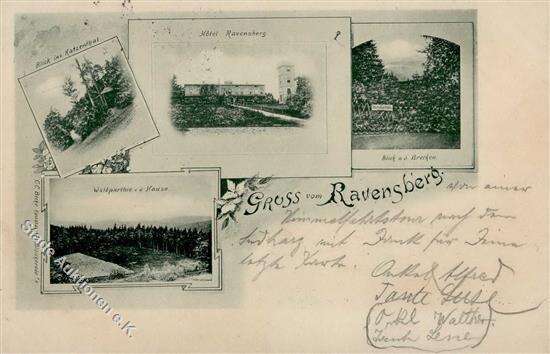 Blick ins Katzenthal
Hôtel Ravensberg
Blick a.d. Brocken
Waldparthie v.d. Hause
GRUSS vom Ravensberg.
von einer
Himmelfahrtstour nach dem
Südharz mit Dank für Deine
letzte Karte
Onkel Alfred
Tante Luise
Onkel Walther
Tante Lene
Stade Auktionen e.K.